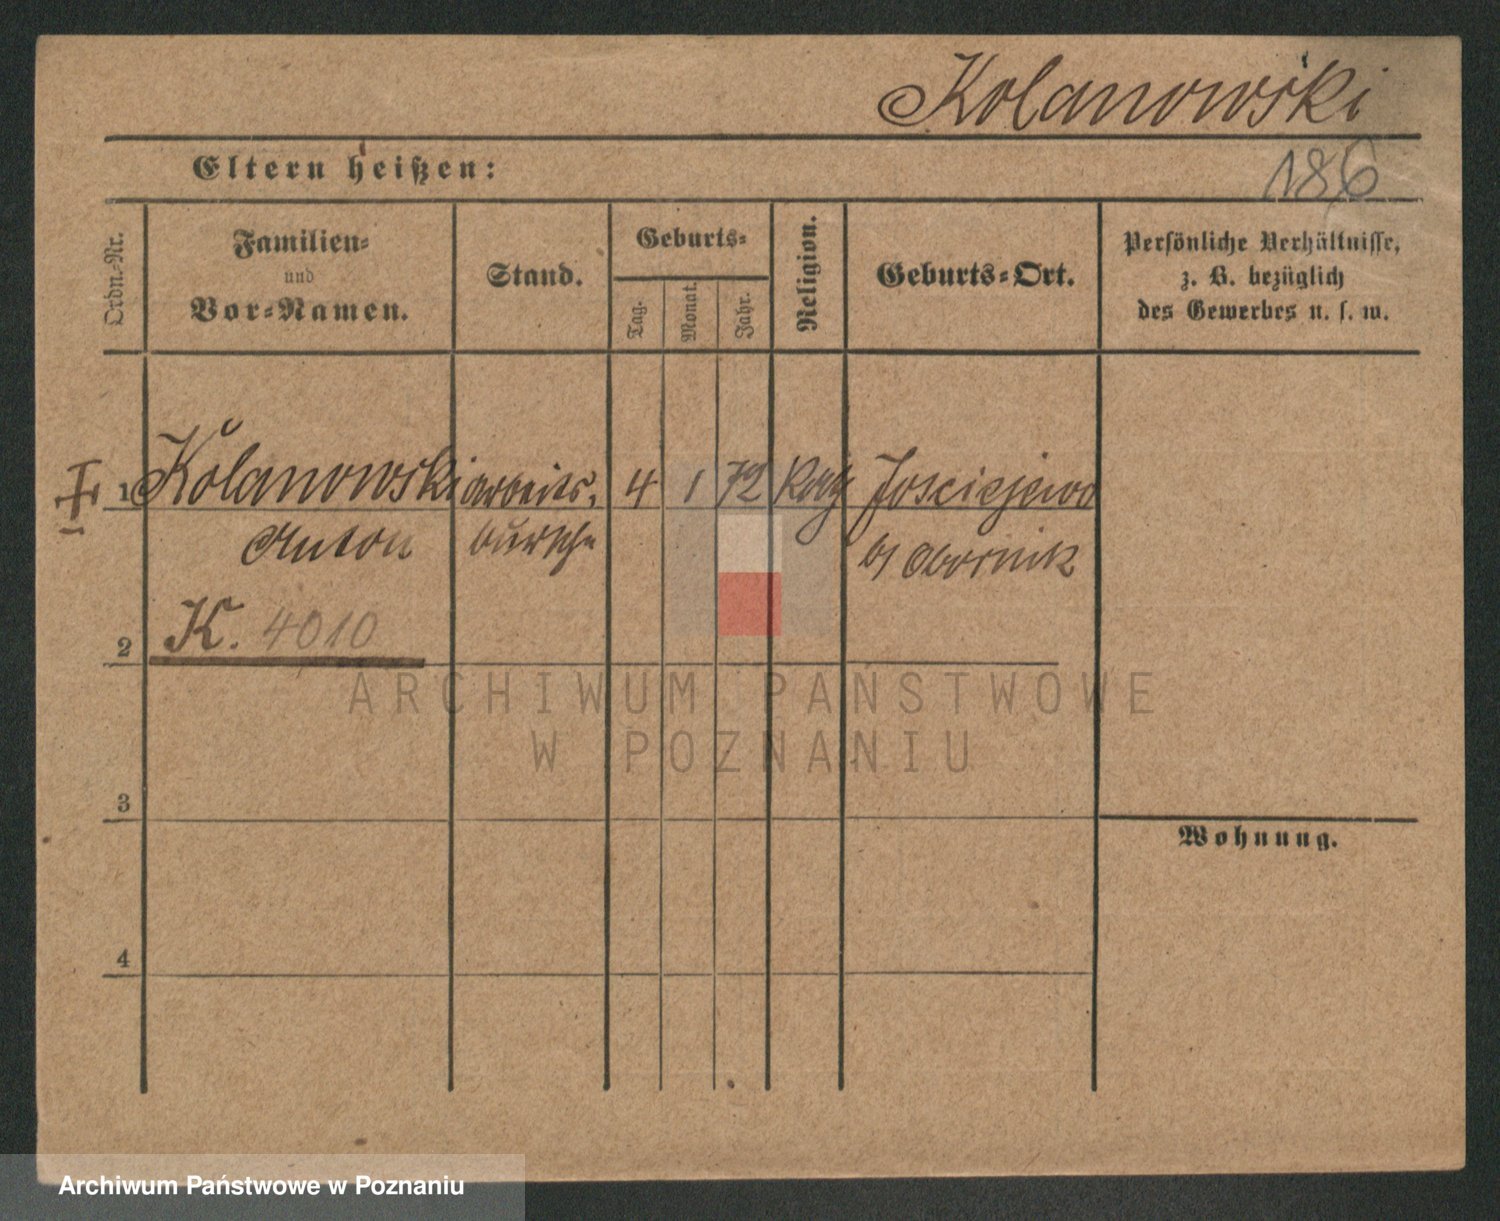 Kolanowski
Eltern heißen:
186
Ordn.-Nr.
Familien-
und
Vor-Namen.
Stand.
Geburts-
Tag.
Monat.
Jahr.
Religion.
Geburts-Ort.
Persönliche Verhältnisse,
z. B. bezüglich
des Gewerbes u. s. w.
1 Kolanowski arbeits- 4 1 72 Kath Josciejewo
Anton bursche b/ Obornik
K. 4010
2
ARCHIWUM PAŃSTWOWE
W POZNANIU
3
Wohnung.
4
Archiwum Państwowe w Poznaniu